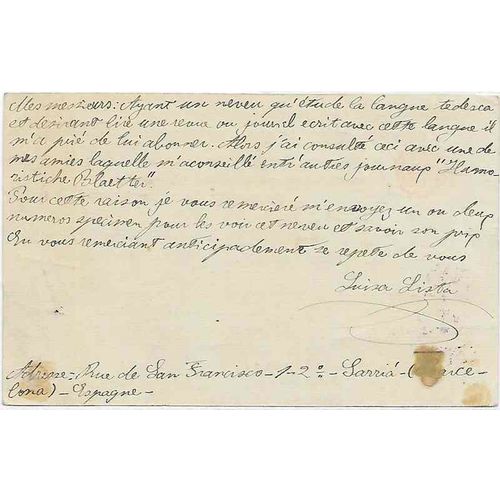 Mes messieurs: Ayant un neveu qu'étude la langue tedesca
et desirant lire une revue ou journl ecrit avec cette langue il
m'a prié de lui abonner. Alors j'ai consulté ceci avec une de
mes amies laquelle m'a conseillé entr'autres journaux "Humo-
ristiche Blaetter".
Pour cette raison je vous remercieré m'envoyez un ou deux
numeros specimen pour les voir cet neveu et savoir son prix
En vous remerciant anticipadement se repete de vous
Luisa Lista
Adresse- Rue de San Francisco-1-2º- Sarriá-(Barce-
lona)-Espagne-